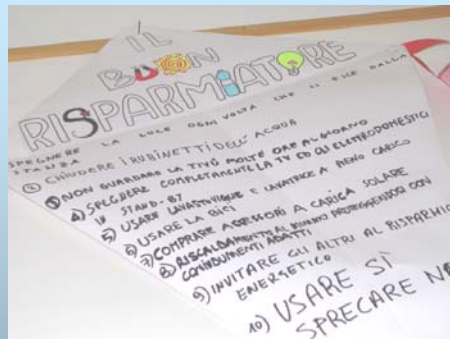 IL
BUON
RISPARMIATORE
SPEGNERE LA LUCE OGNI VOLTA CHE SI ESCE DALLA
STANZA
② CHIUDERE I RUBINETTI DELL'ACQUA
③ NON GUARDARE LA TIVÙ MOLTE ORE AL GIORNO
4) SPEGNERE COMPLETAMENTE LA TV ED GLI ELETTRODOMESTICI
IN STAND-BY
5) USARE LAVASTOVIGLIE E LAVATRICE A PIENO CARICO
6) USARE LA BICI
7) COMPRARE ACCESSORI A CARICA SOLARE
8) RISCALDAMENTO AL MINIMO PROTEGGENDOSI CON
INDUMENTI ADATTI
9) INVITARE GLI ALTRI AL RISPARMIO
ENERGETICO
10) USARE SÌ
SPRECARE